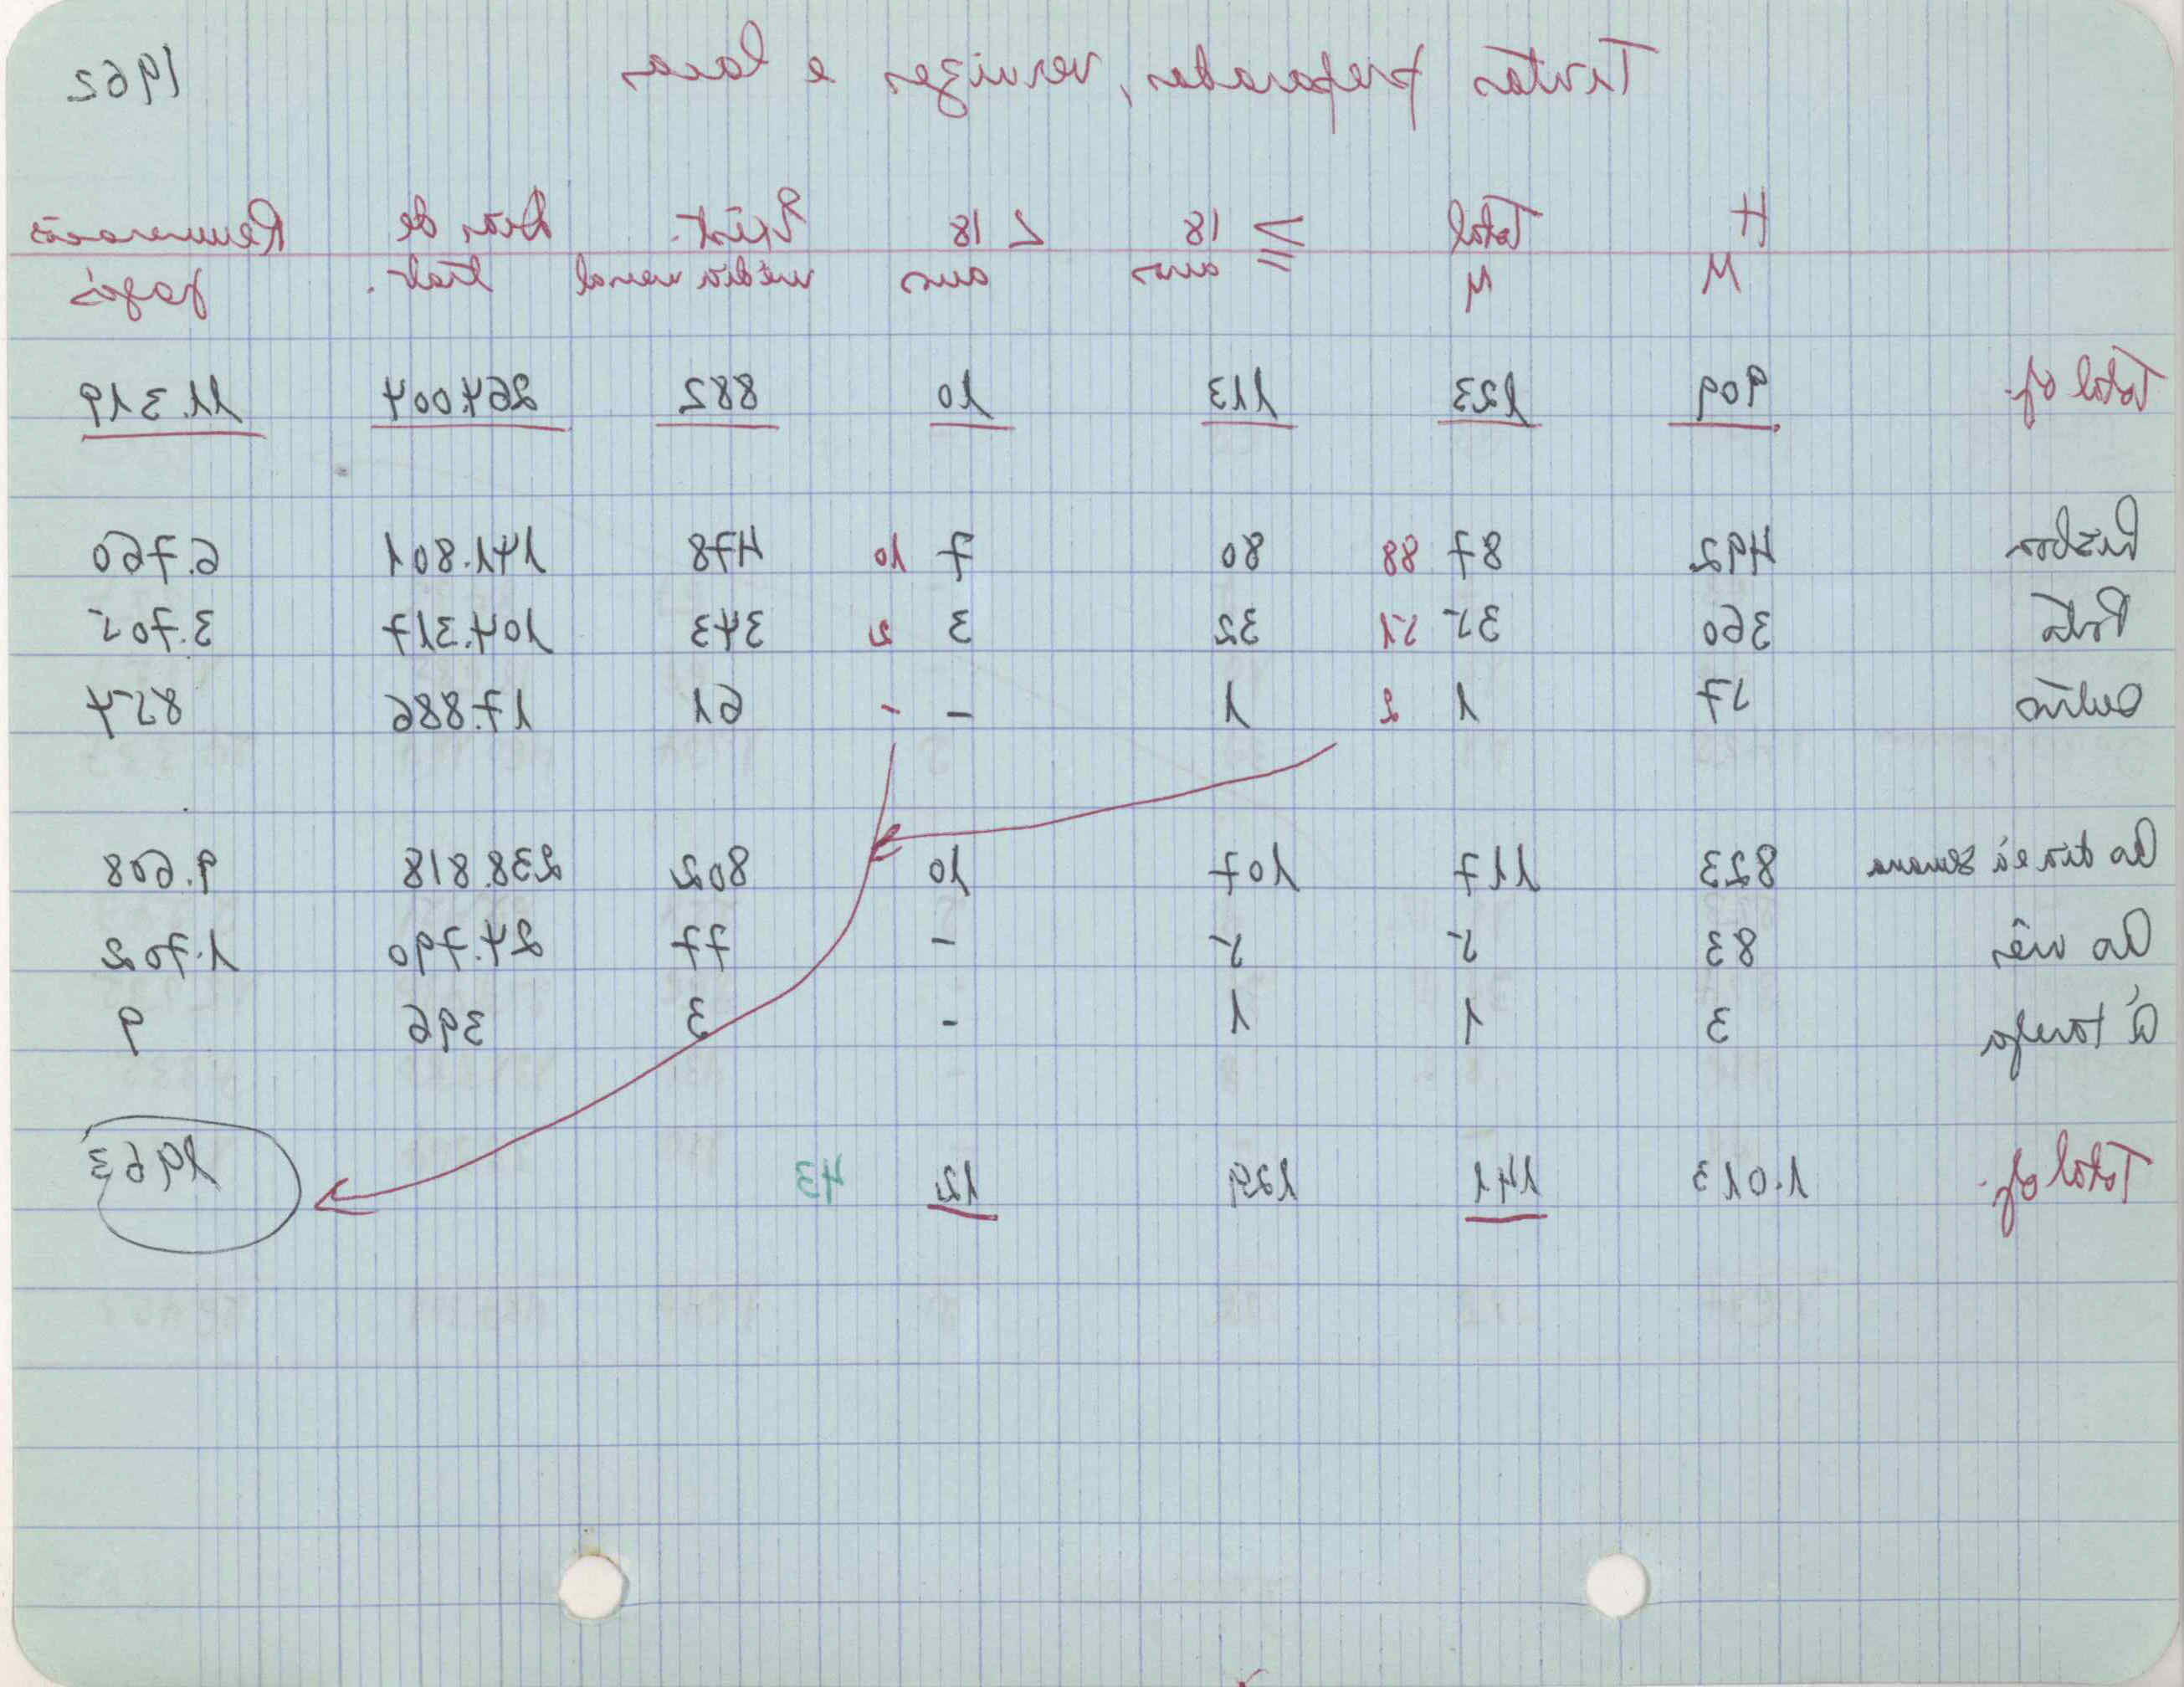 Tintas preparadas, vernizes e lacas 1962
H Total ≥ 18 < 18 Exist. Dias de Remunerações
M M anos anos média mensal trab. pagas
Total of. 909 123 113 10 882 264.004 11.319
Lisboa 492 87 88 80 7 10 478 141.801 6.760
Porto 360 35 51 32 3 2 343 104.317 3.705
Outros 57 1 2 1 - - 61 17.886 854
Ao dia e à semana 823 117 107 10 802 238.818 9.608
Ao mês 83 5 5 - 77 24.790 1.702
À tarefa 3 1 1 - 3 396 9
Total of. 1.013 141 129 12 43 1963